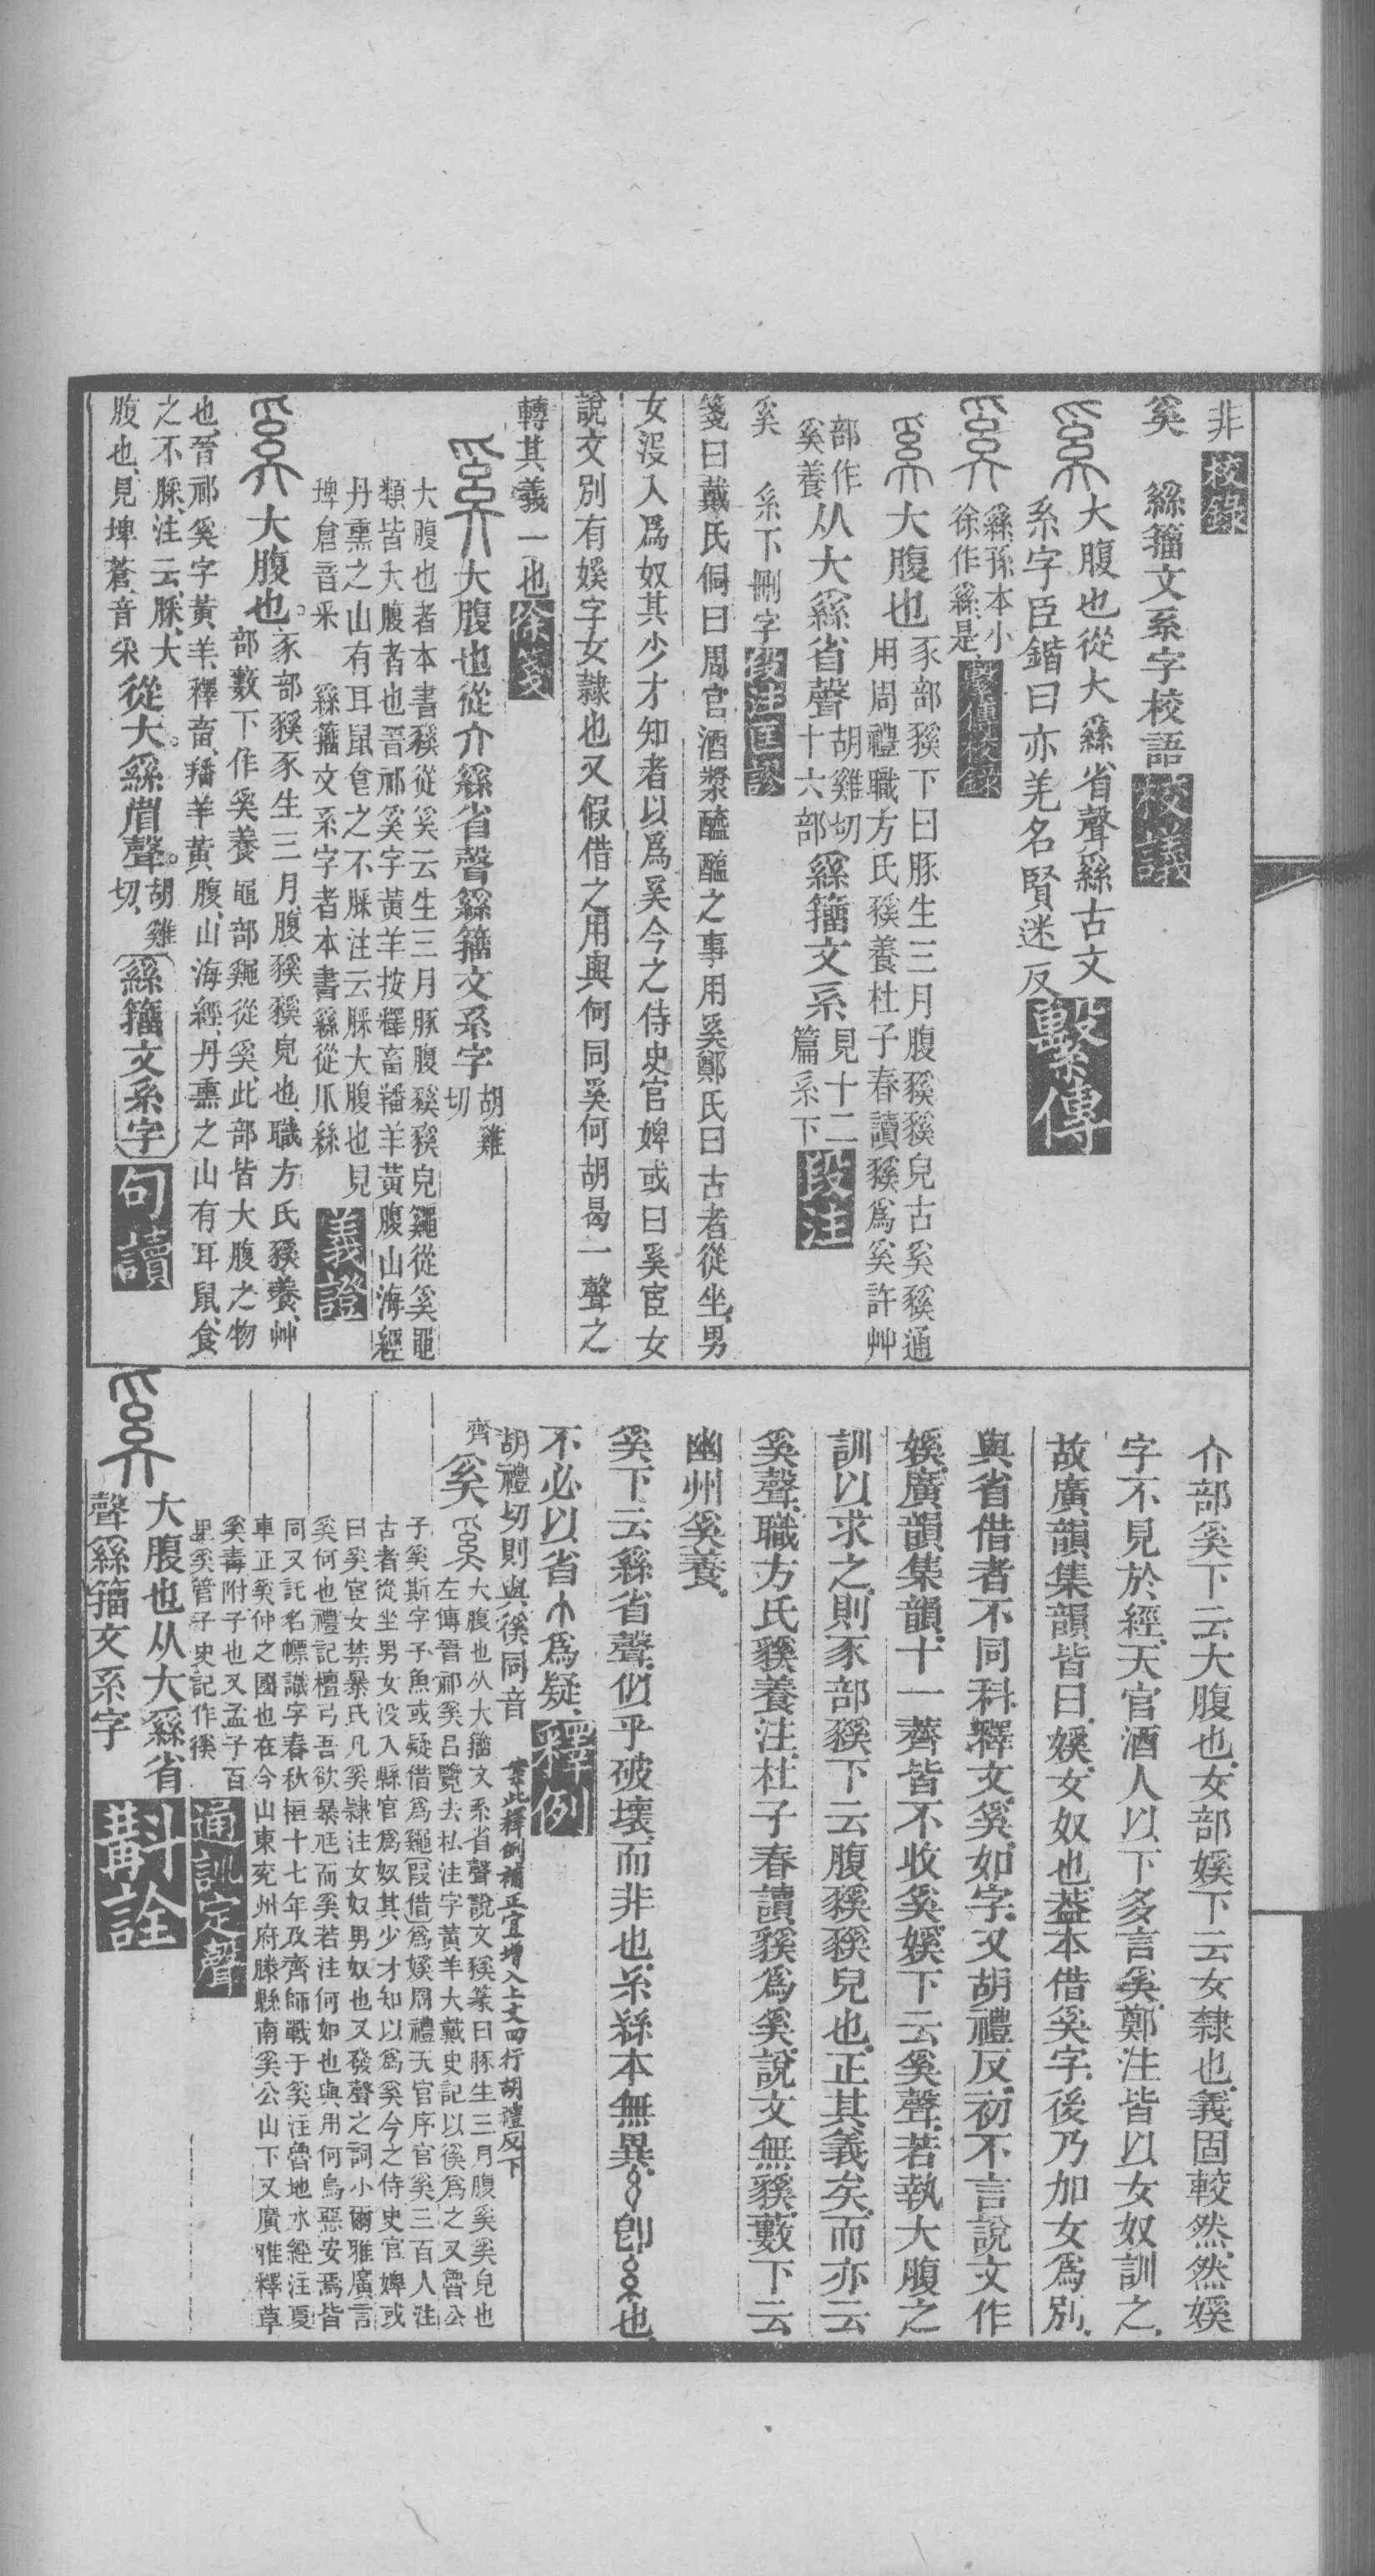 非校錄
奚　繇籀文系字校語校議
大腹也從大繇省聲繇古文
系字臣鍇曰亦羌名賢迷反繫傳
繇孫本小
徐作繇是繫傳校錄
大腹也
豕部豯下曰豚生三月腹豯豯皃古奚豯通
用周禮職方氏豯養杜子春讀豯爲奚許艸
部作
奚養
从大繇省聲
胡雞切
十六部
繇籀文系
見十二
篇系下
段注
奚　系下刪字段注匡謬
箋曰戴氏侗曰周官酒漿醯醢之事用奚鄭氏曰古者從坐男
女沒入爲奴其少才知者以爲奚今之侍史官婢或曰奚宦女
說文別有媛字女隸也又假借之用與何同奚何胡曷一聲之
轉其義一也徐箋
大腹也從介繇省聲繇籀文系字
胡雞
切
大腹也者本書豯從奚云生三月豚腹豯豯皃鼷從奚黽
類皆大腹者也晉祁奚字黃羊按釋畜羳羊黃腹山海經
丹熏之山有耳鼠食之不䐆注云䐆大腹也見
埤倉音采　繇籀文系字者本書繇從爪絲
義證
大腹也。
豕部豯豕生三月腹豯豯皃也、職方氏豯養、艸
部藪下作奚養黽部鼷從奚、此部皆大腹之物
也晉祁奚字黃羊、釋畜、羳羊黃腹、山海經、丹熏之山有耳鼠、食
之不䐆、注云、䐆、大
腹也、見埤蒼、音采
從大。繇省聲。
胡雞
切、
繇籀文系字
句讀
介部奚下云大腹也、女部媛下云女隸也、義固較然、然媛
字不見於經、天官酒人以下多言奚、鄭注皆以女奴訓之、
故廣韻集韻皆曰、媛、女奴也、葢本借奚字、後乃加女爲別、
與省借者不同科、釋文、奚、如字、又胡禮反、初不言說文作
媛、廣韻集韻十一薺皆不收奚、媛下云奚聲、若執大腹之
訓以求之、則豕部豯下云腹豯豯皃也、正其義矣、而亦云
奚聲、職方氏豯養注、杜子春讀豯爲奚、說文無豯、藪下云
幽州奚養、
奚下云繇省聲、似乎破壞、而非也、系繇本無異、卽也、
不必以省爲疑、釋例
胡禮切則與徯同音　案此釋例補正宜增入上文四行胡禮反下
齊
奚
大腹也从大籀文系省聲說文豯篆曰豚生三月腹奚奚皃也
左傳晉祁奚呂覽去私注字黃羊大戴史記以徯爲之又魯公
子奚斯字子魚或疑借爲鼷叚借爲媛周禮天官序官奚三百人注
古者從坐男女沒入縣官爲奴其少才知以爲奚今之侍史官婢或
曰奚宦女禁暴氏凡奚隸注女奴男奴也又發聲之詞小爾雅廣言
奚何也禮記檀弓吾欲暴尪而奚若注何如也與用何烏惡安焉皆
同又託名幖識字春秋桓十七年及齊師戰于奚注魯地水經注夏
車正奚仲之國也在今山東兗州府滕縣南奚公山下又廣雅釋草
奚毒附子也又孟子百
里奚管子史記作徯
通訓定聲
大腹也从大繇省
聲繇籀文系字
斠詮